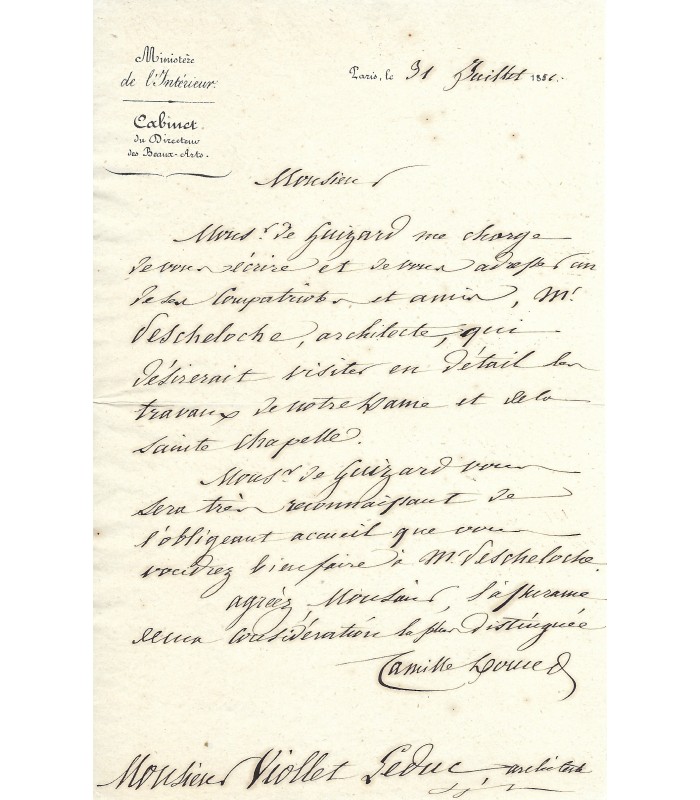 Ministère
de l'Intérieur.
Cabinet
du Directeur
des Beaux-Arts.
Paris, le 31 Juillet 185
Monsieur
Mons.r de Guizard me charge
de vous écrire et de vous adresser un
de ses Compatriotes et amis, Mr.
Descheloche, architecte, qui
désirerait visiter en détail les
travaux de notre Dame et de la
Sainte Chapelle.
Mons.r de Guizard vous
sera très reconnaissant de
l'obligeant accueil que vous
voudrez bien faire à Mr. Descheloche.
agréez, Monsieur, l'assurance
de ma Considération la plus distinguée
Camille Doucet
Monsieur Viollet Leduc architecte